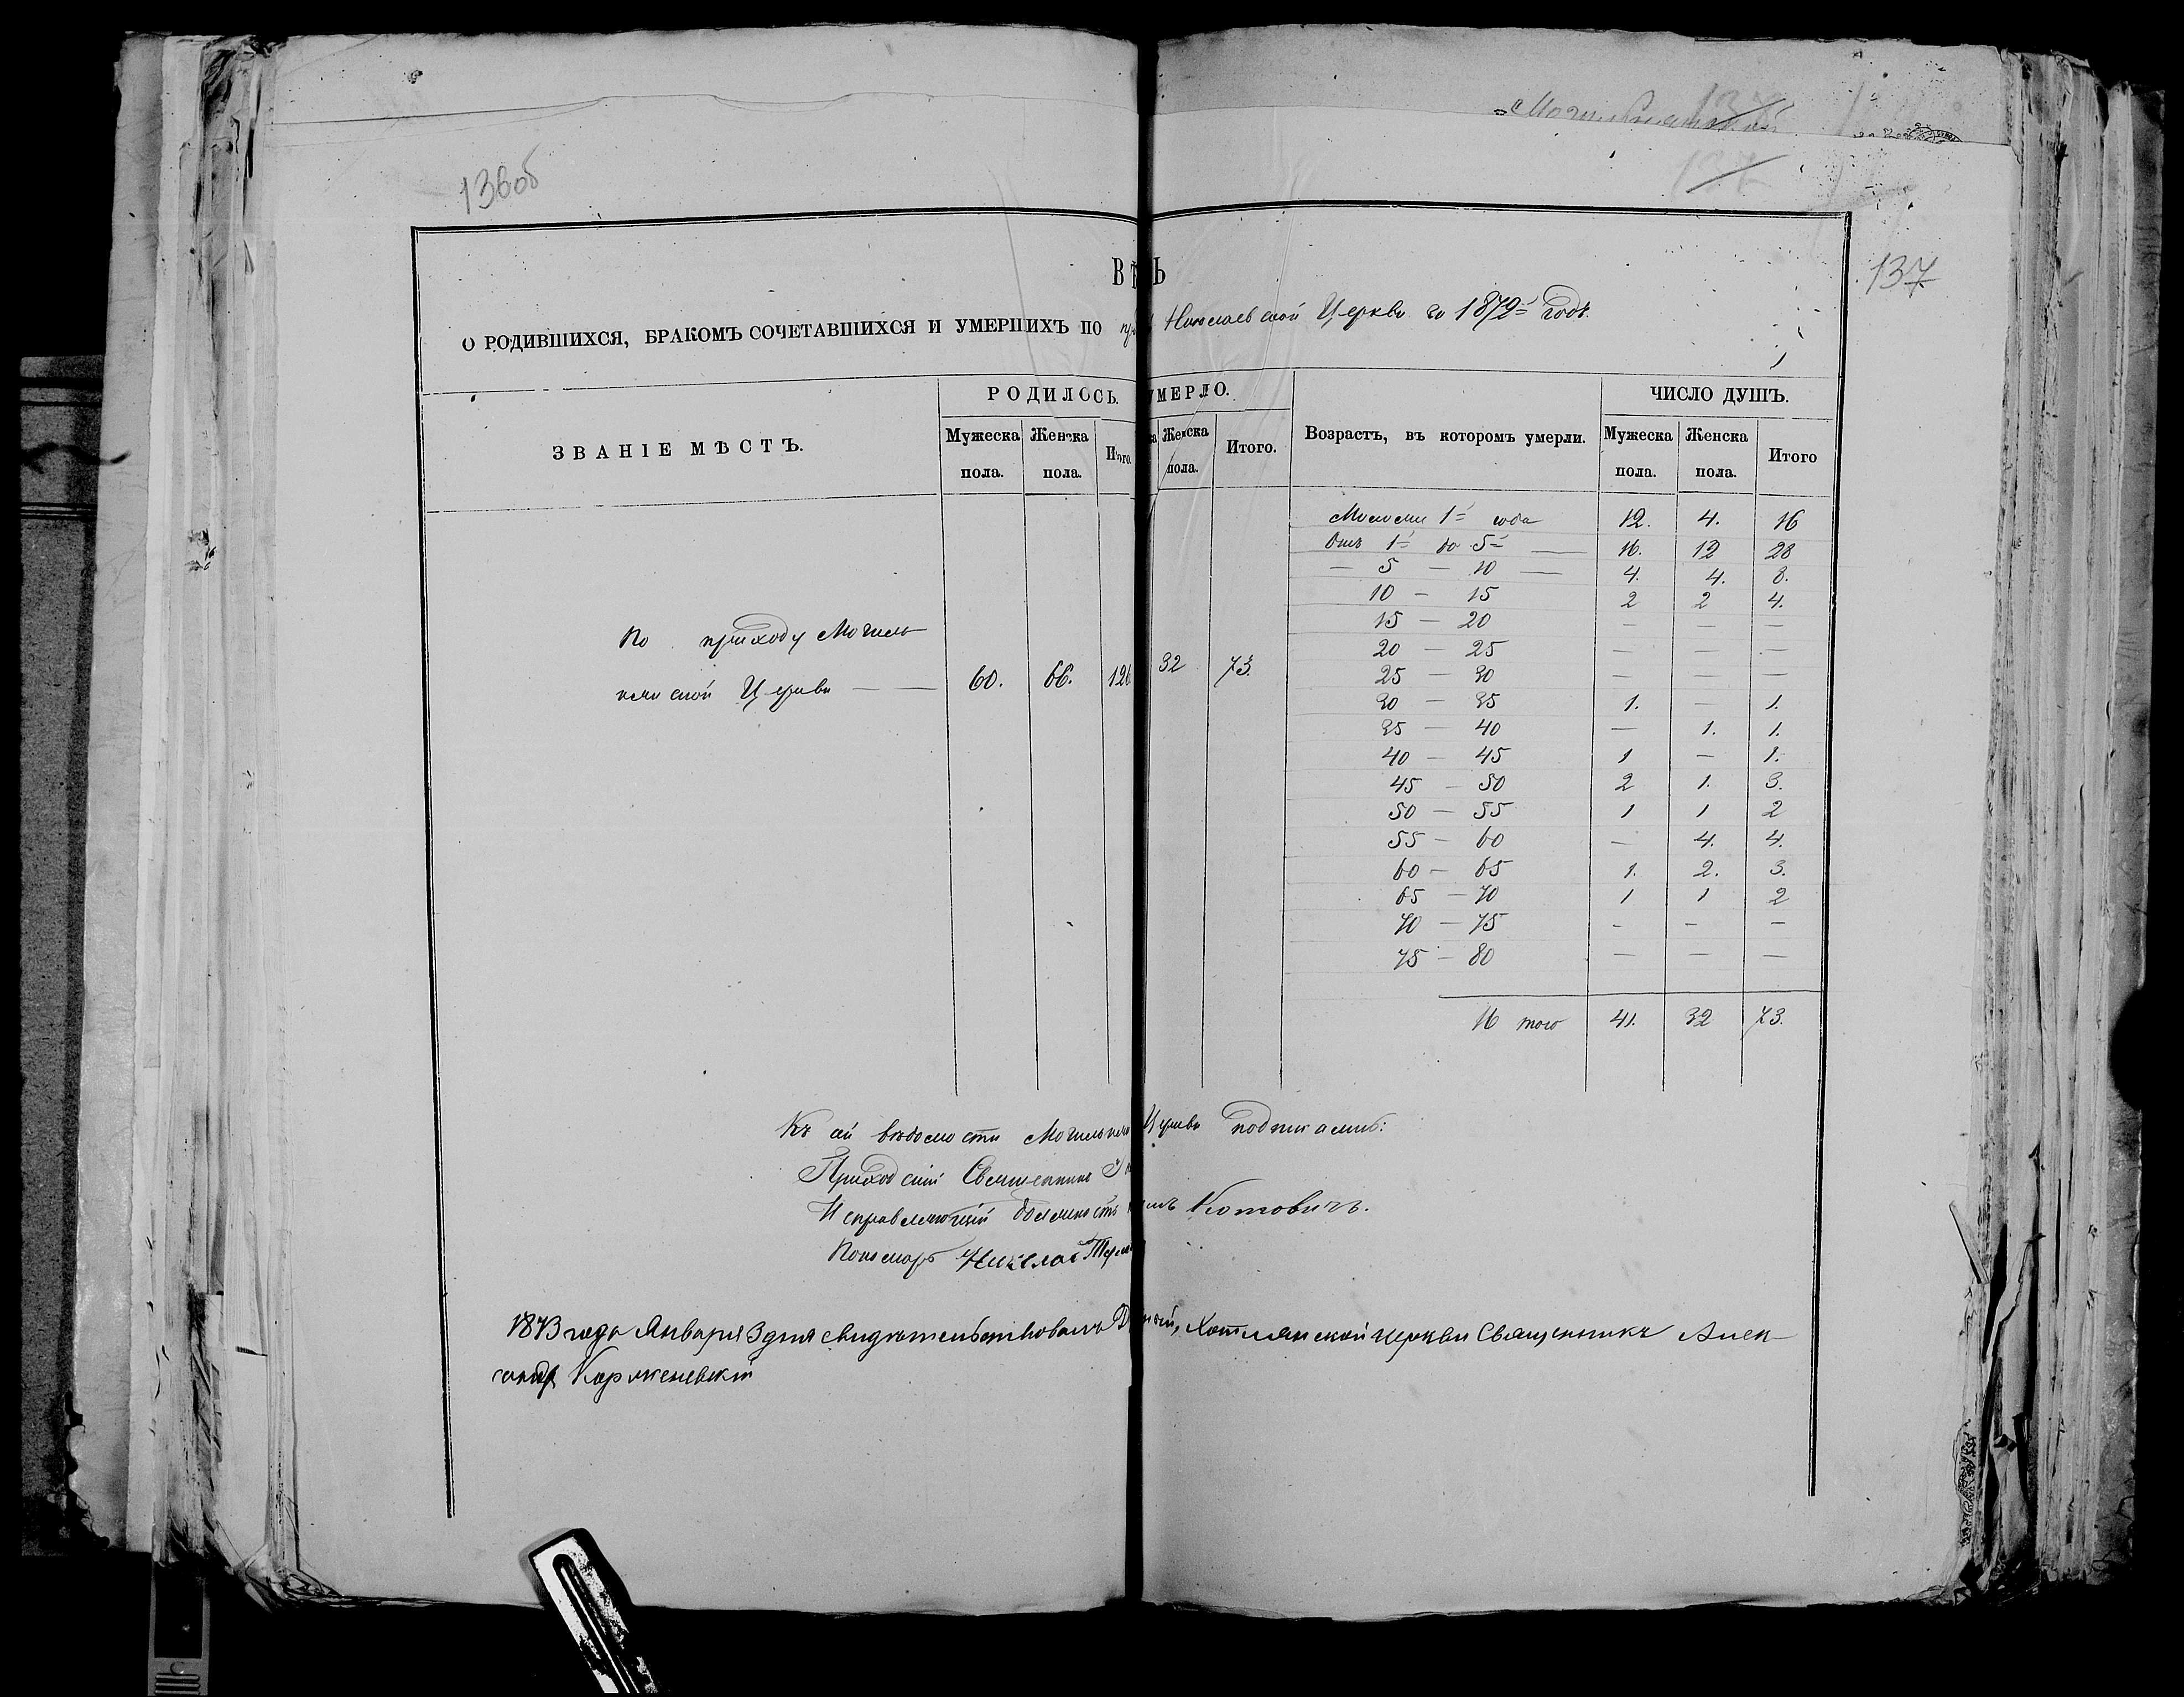 136об
137
137
ВѢ Ь
О РОДИВШИХСЯ, БРАКОМЪ СОЧЕТАВШИХСЯ И УМЕРШИХЪ ПО Николаевской Церкви за 1872й годъ.
ЗВАНІЕ МѢСТЪ.
РОДИЛОСЬ.
УМЕРЛО.
Возрастъ, въ которомъ умерли.
ЧИСЛО ДУШЪ.
Мужеска пола.
Женска пола.
Итого.
Женска пола.
Итого.
Мужеска пола.
Женска пола.
Итого
По приходу Могиль
нянской Церкви — — 60. 66. 126 32 73.
1й года 12. 4. 16
Отъ 1й до 5й — 16. 12 28
— 5 — 10 — 4. 4. 8.
10 — 15 2 2 4.
15 — 20 — — —
20 — 25 — — —
25 — 30 — — —
30 — 35 1. — 1.
35 — 40 — 1. 1.
40 — 45 1 — 1.
45 — 50 2 1. 3.
50 — 55 1 1 2
55 — 60 — 4. 4.
60 — 65 1. 2. 3.
65 — 70 1 1 2
70 — 75 - - —
75 — 80 — — —
И того 41. 32 73.
Къ сей вѣдомости Церкви подписались:
Приходскій Священникъ
Исправляющій должность Котовичъ.
Пономарь Николай
1873 года Января 3 дня свидѣтельствовалъ Хотлянской церкви Священникъ Алек-
сандр Корженевскій